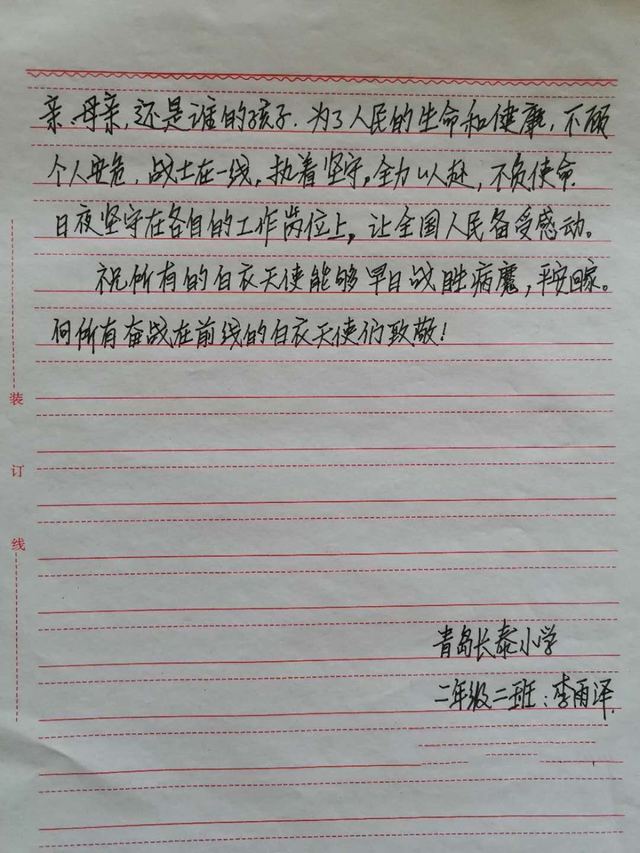 亲、母亲,还是谁的孩子.为了人民的生命和健康,不顾
个人安危,战士在一线,执着坚守,全力以赴,不负使命.
日夜坚守在各自的工作岗位上,让全国人民备受感动。
祝所有的白衣天使能够早日战胜病魔,平安回家。
向所有奋战在前线的白衣天使们致敬!
装
订
线
青岛长泰小学
二年级二班:李雨泽